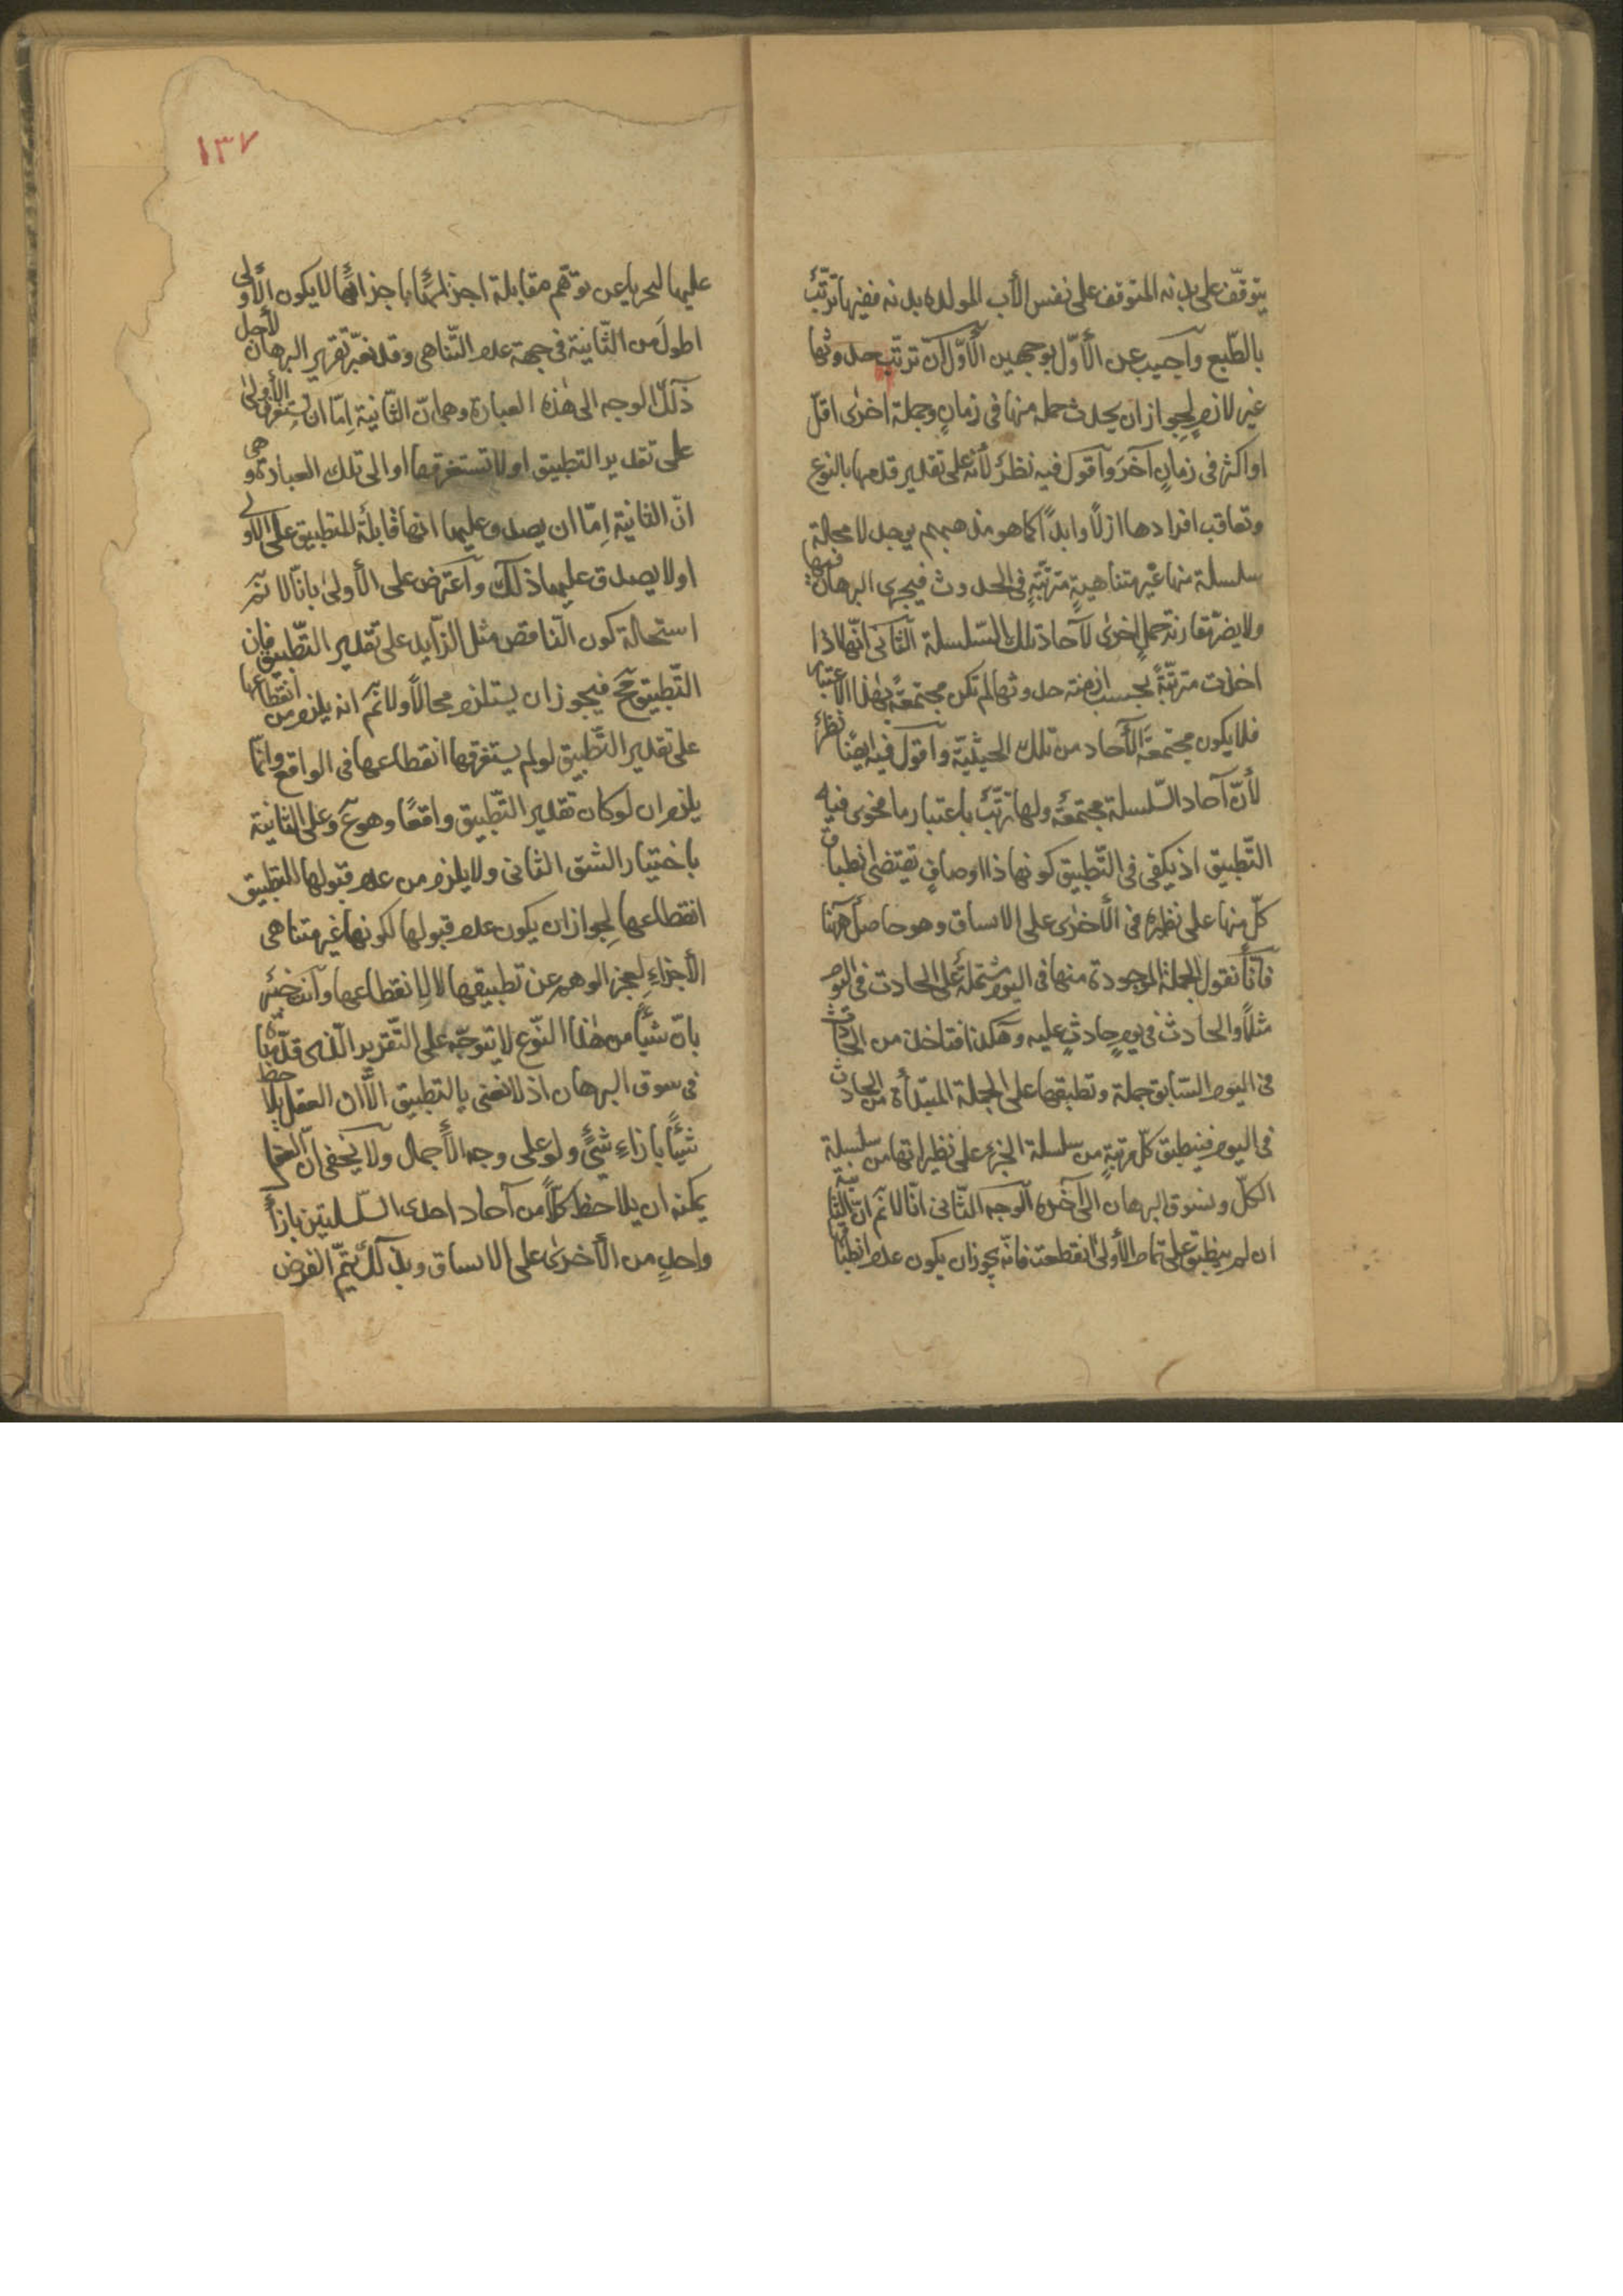 يتوقّف على بدنه المتوقف على نفس الأب المولدة بدنه ففيها ترتّبٌ
بالطّبع وآجيب عن الأوّل بوجهين الأوّل آن ترتّب حدوثها
غير لازمٍ لجواز ان يحدث جملة منها فى زمانٍ وجملة اخرى اقلّ
او اكثر فى زمانٍ آخر وآقول فيه نظرٌ لأنّه على تقدير قدمها بالنوع
وتعاقب افرادها ازلًا وابدًا كما هو مذهبهم يوجد لا محالة
سلسلة منها غير متناهيةٍ مترتّبةٍ فى الحدوث فيجرى البرهان فيها
ولا يضرّ مقارنة جملٍ اخرى لآحاد تلك السّلسلة الثّانى انّها اذا
اخذت مترتّبةً بحسب ازمنة حدوثها لم تكن مجتمعةً بهذا الاعتبار
فلا يكون مجتمعة الآحاد من تلك الحيثيّة وآقول فيه ايضًا نظرٌ
لأنّ آحاد السّلسلة مجتمعةٌ ولها ترتّبٌ باعتبار ما فجرى فيه
التّطبيق اذ يكفى فى التّطبيق كونها ذا اوصافٍ تقتضى انطباق
كلّ منها على نظيره فى الأخرى على الاتساق وهو حاصلٌ هٰهنا
فآنّا نقول الجملة الموجودة منها فى اليوم مشتملةٌ على الحادث فى اليوم
مثلًا والحادث فى يومٍ حادثٍ عليه وهكذا فتاخذ من الحادث
فى اليوم السّابق جملة وتطبقها على الجملة المبتدأة من الحادث
فى اليوم فينطبق كلّ مرتبةٍ من سلسلة الجزء على نظيراتها من سلسلة
الكلّ ونسوق البرهان الى آخره الوجه الثّانى انّا لا نم انّ الثّانية
ان لم ينطبق على تمام الأولى انقطعت فانّه يجوز ان يكون عدم انطباق
١٣٧
عليها لعجزنا عن توهّم مقابلة اجزائها باجزائها لا يكون الأولى
اطول من الثّانية فى جهة عدم التّناهى وقد نغيّر تقرير البرهان لأجل
ذلك الوجه الى هٰذه العبارة وهى انّ الثّانية اِمّا ان تستغرق الأولى
على تقدير التطبيق او لا تستغرقها او الى تلك العبارة وهى
انّ الثانية اِمّا ان يصدق عليها انها قابلةٌ للتطبيق على الاولى
او لا يصدق عليها ذلك وآعترض على الأولى بانّا لا نم
استحالة كون النّاقص مثل الزّايد على تقدير التّطبيق فان
التّطبيق مح فيجوز ان يستلزم محالًا ولا نم انه يلزم من انقطاعها
على تقدير التّطبيق لو لم يستغرقها انقطاعها فى الواقع وانّما
يلزم ان لو كان تقدير التّطبيق واقعًا وهو مم وعلى الثانية
باختيار الشق الثانى ولا يلزم من عدم قبولها للتطبيق
انقطاعها لِجواز ان يكون عدم قبولها لكونها غير متناهى
الأجزاءِ لعجز الوهم عن تطبيقها لا لانقطاعها وآنت خبير
بانّ شيئًا من هٰذا النّوع لا يتوجّه على التّقرير الّذى قدّمناه
فى سوق البرهان اذ لا نعنى بالتطبيق الّا ان العقل يلاحظ
شيئًا بازاءِ شئٍ ولو على وجه الأجمال ولا يخفى ان العقل
يمكنه ان يلاحظ كلًا من آحاد احدى السّلسلتين بازاء
واحدٍ من الأخرى على الاتساق وبذلك يتمّ الغرض